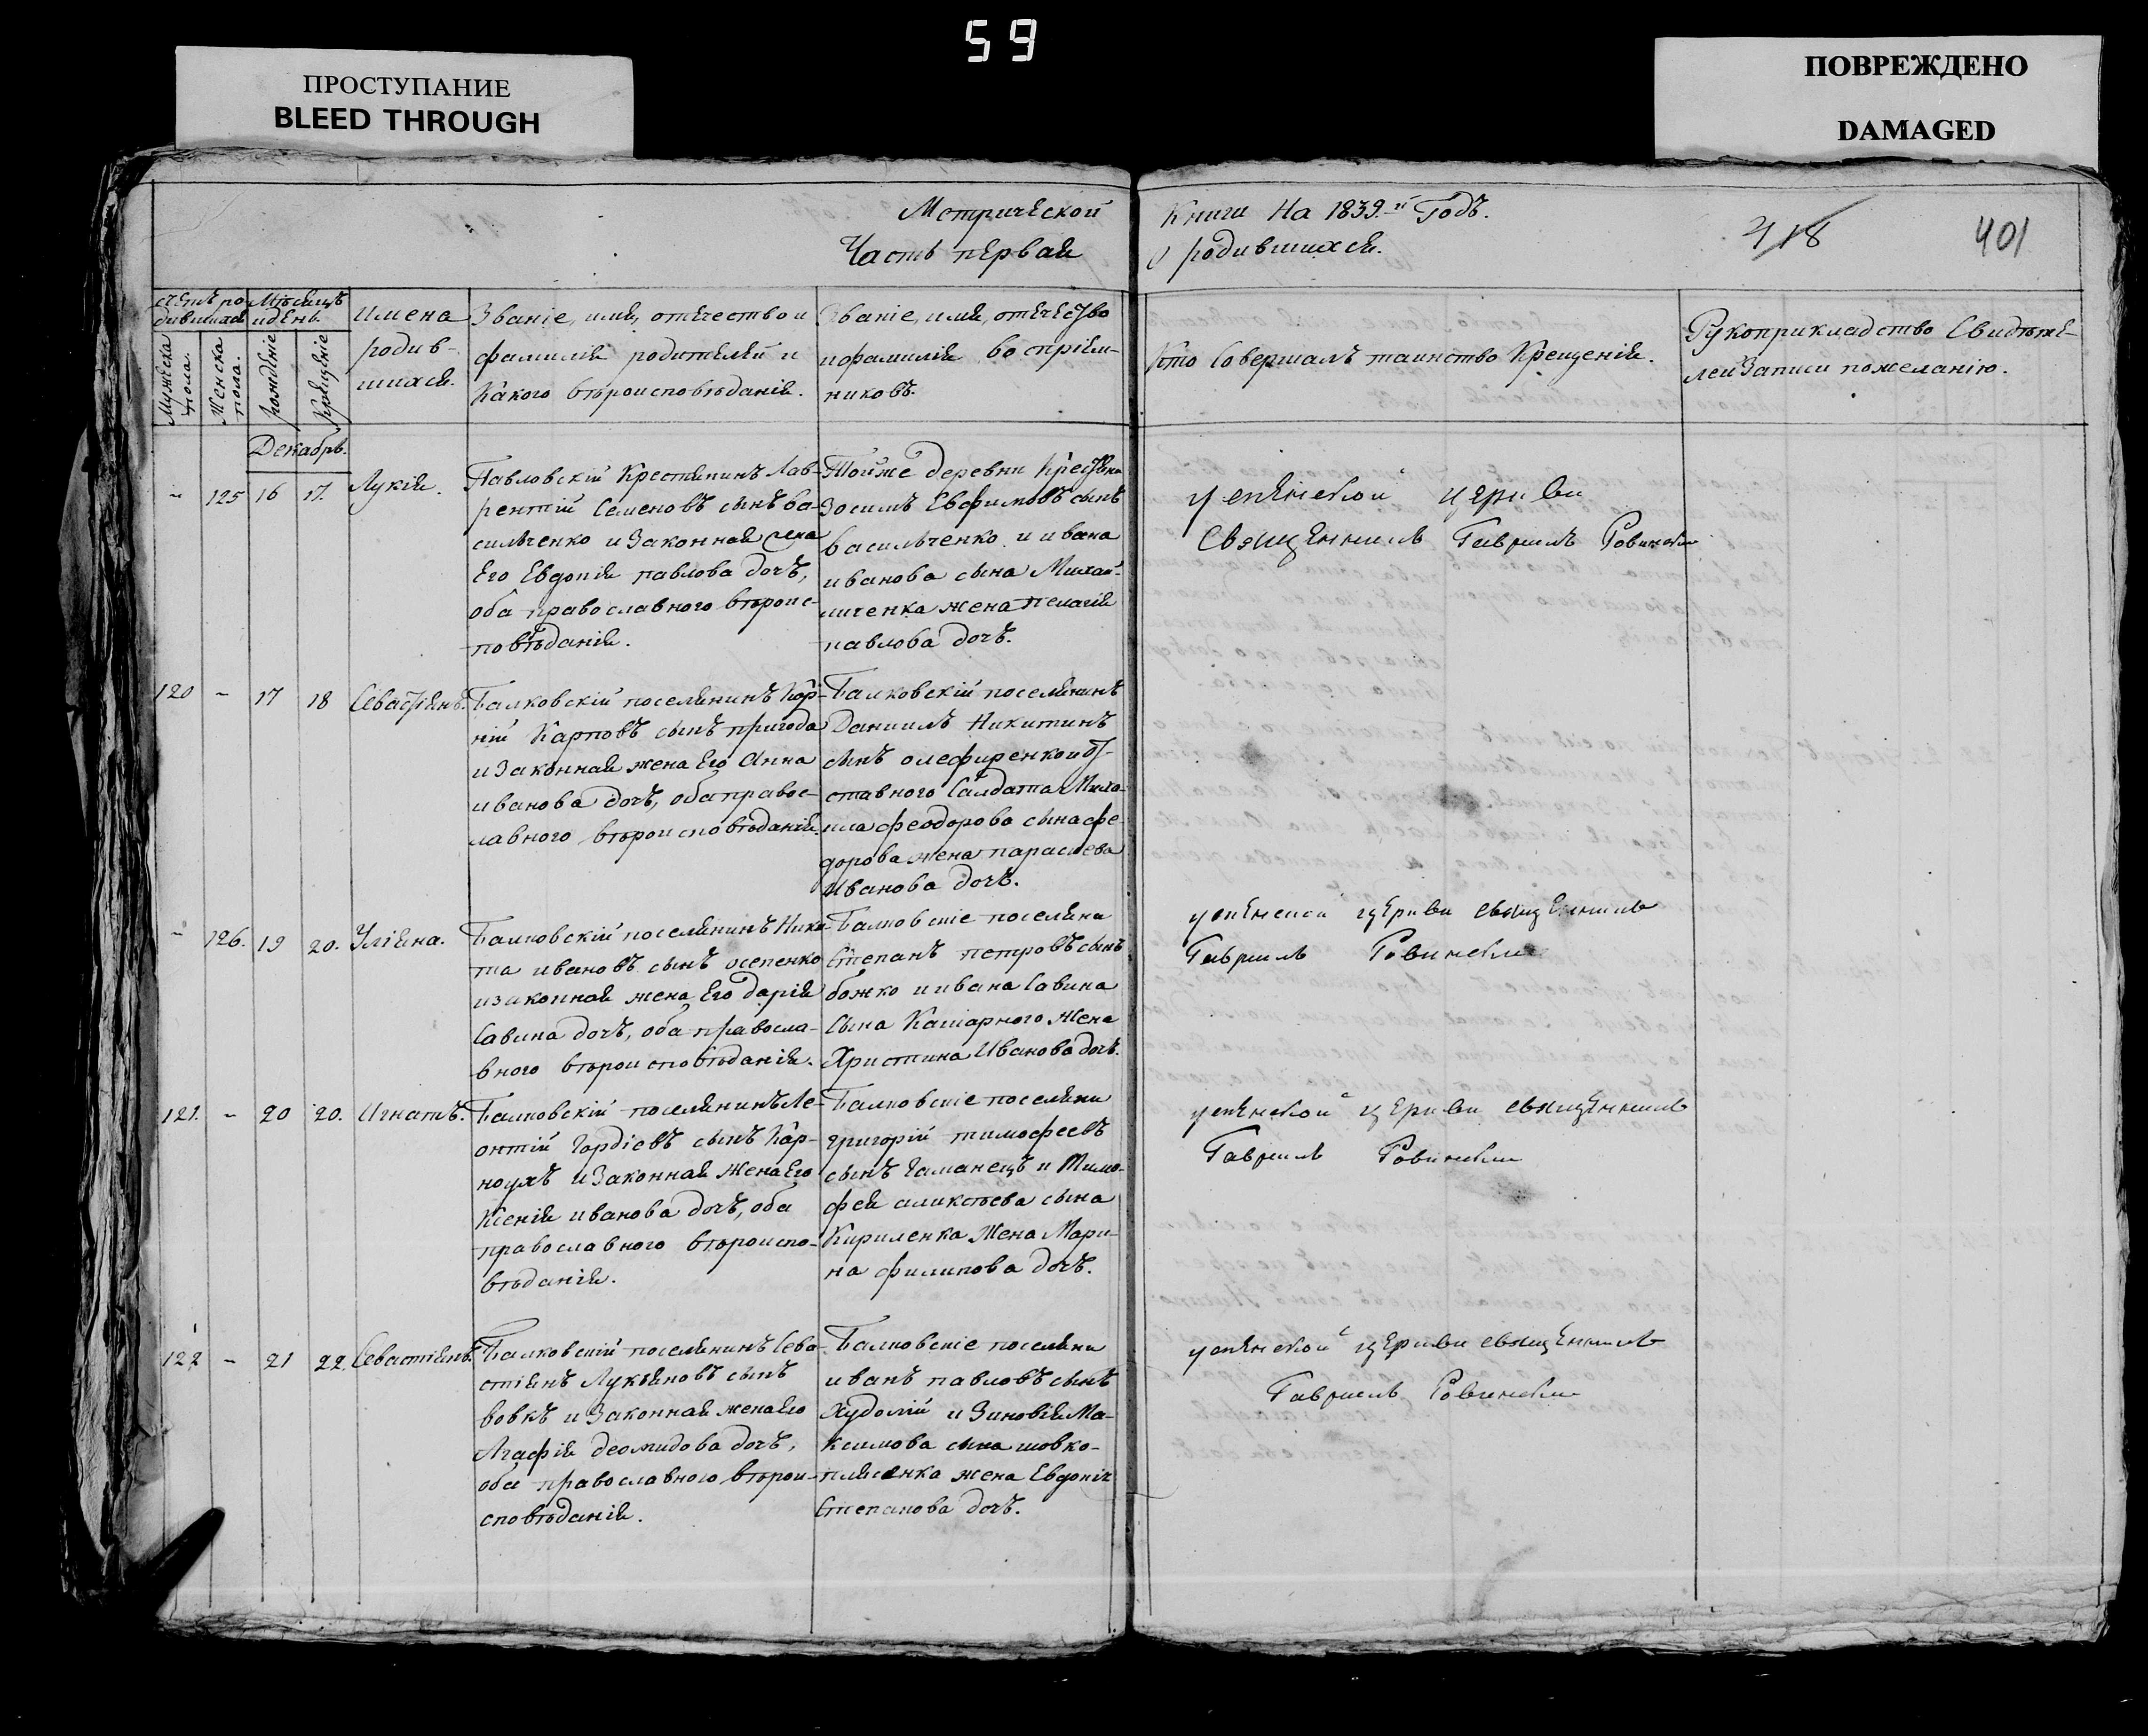 59
ПРОСТУПАНИЕ
BLEED THROUGH
ПОВРЕЖДЕНО
DAMAGED
Метрической
Часть первая
Книги На 1839.й Годъ.
О родившихся.
418
401
счетъ ро-
дившихся
Мѣсяцъ
и день.
Мужеска
пола.
Женска
пола.
рожденіе
Крещеніе
Имена
родив-
шихся.
Званіе, имя, отечество и
фамилія родителей и
Какого вѣроисповѣданія.
Званіе, имя, отечество
и фамилія воспріем-
никовъ.
Кто Совершалъ таинство Крещенія.
Рукоприкладство Свидѣте-
лей Записи по желанію.
Декабрь.
- 125 16 17. Лукія.
Павловскій Крестянинъ Лав-
рентій Семеновъ сынъ Ва-
сильченко и Законная жена
Его Евдокія павлова дочь,
оба православного вѣроис-
повѣданія.
Тойже деревни Крестяне
Зосимъ Евфимовъ сынъ
Васильченко и ивана
иванова сына Михай-
личенка жена пелагія
павлова дочь.
успенской церкви
Священникъ Гавриилъ Ровинскій
120 - 17 18 Севастіянъ.
Балковскій поселянинъ Кор-
ній Карповъ сынъ пригода
и Законная жена Его Анна
иванова дочь, оба правос-
лавного вѣроисповѣданія.
Балковскій поселянинъ
Даниилъ Никитинъ
сынъ олефиренко и От-
ставного Салдата Миха-
ила феодорова сына фе-
дорова жена параскева
Иванова дочь.
- 126. 19 20. Уліяна.
Балковскій поселянинъ Ники-
та ивановъ сынъ осепенко
и законная жена Его дарія
Савина дочь, оба правосла-
вного вѣроисповѣданія.
Балковскіе поселяне
Степанъ петровъ сынъ
божко и ивана Савина
Сына Кашарного Жена
Христина Иванова дочь.
успенской церкви священникъ
Гавриилъ Ровинскій
121. - 20 20. Игнатъ.
Балковскій поселянинъ Ле-
онтій Гордіевъ сынъ Кор-
ноухъ и Законная Жена Его
Ксенія иванова дочь, оба
православного вѣроиспо-
вѣданія.
Балковскіе поселяне
григорій тимофеевъ
сынъ Гаманецъ и Тимо-
фея аликсѣева сына
Кириленка Жена Мари-
на филипова дочь.
успенской церкви священникъ
Гавриилъ Ровинскій
122 - 21 22. Севастіянъ.
Балковскій поселянинъ Сева-
стіянъ Лукьяновъ сынъ
вовкъ и Законная жена Его
Агафія деомидова дочь,
оба православного вѣрои-
сповѣданія.
Балковскіе поселяне
иванъ павловъ сынъ
Худолій и Зиновія Ма-
ксимова сына шовко-
плясенка жена Евдокія
Степанова дочь.
успенской церкви священникъ
Гавриилъ Ровинскій